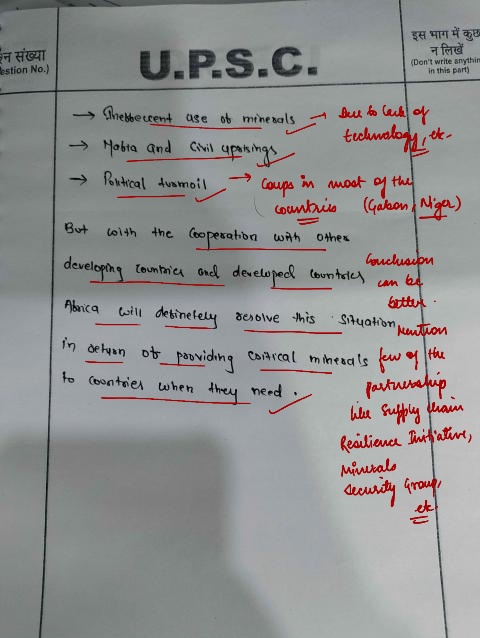 न संख्या
estion No.)
U.P.S.C.
इस भाग में कुछ
न लिखें
(Don't write anything
in this part)
→ use of minerals → Due to lack of
technology, etc.
→ Mafia and Civil uprisings
→ Political turmoil → Coups in most of the
countries (Gabon, Niger)
But with the Cooperation with other
developing countries and developed countries Conclusion
can be
better.
Africa will definetely resolve this situation Mention
in return of providing critical minerals few of the
to countries when they need. partnership
like Supply Chain
Resilience Initiative,
Minerals
Security Group,
etc